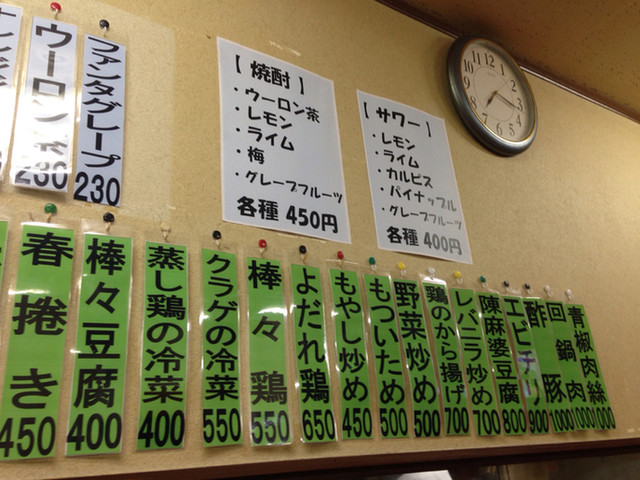 ウーロン茶
230
ファンタグレープ
230
【焼酎】
・ウーロン茶
・レモン
・ライム
・梅
・グレープフルーツ
各種 450円
【サワー】
・レモン
・ライム
・カルピス
・パイナップル
・グレープフルーツ
各種 400円
春捲き
450
棒々豆腐
400
蒸し鶏の冷菜
400
クラゲの冷菜
550
棒々鶏
550
よだれ鶏
650
もやし炒め
450
もついため
500
野菜炒め
500
鶏のから揚げ
700
レバニラ炒め
700
陳麻婆豆腐
800
エビチリ
900
酢豚
1000
回鍋肉
1000
青椒肉絲
1000